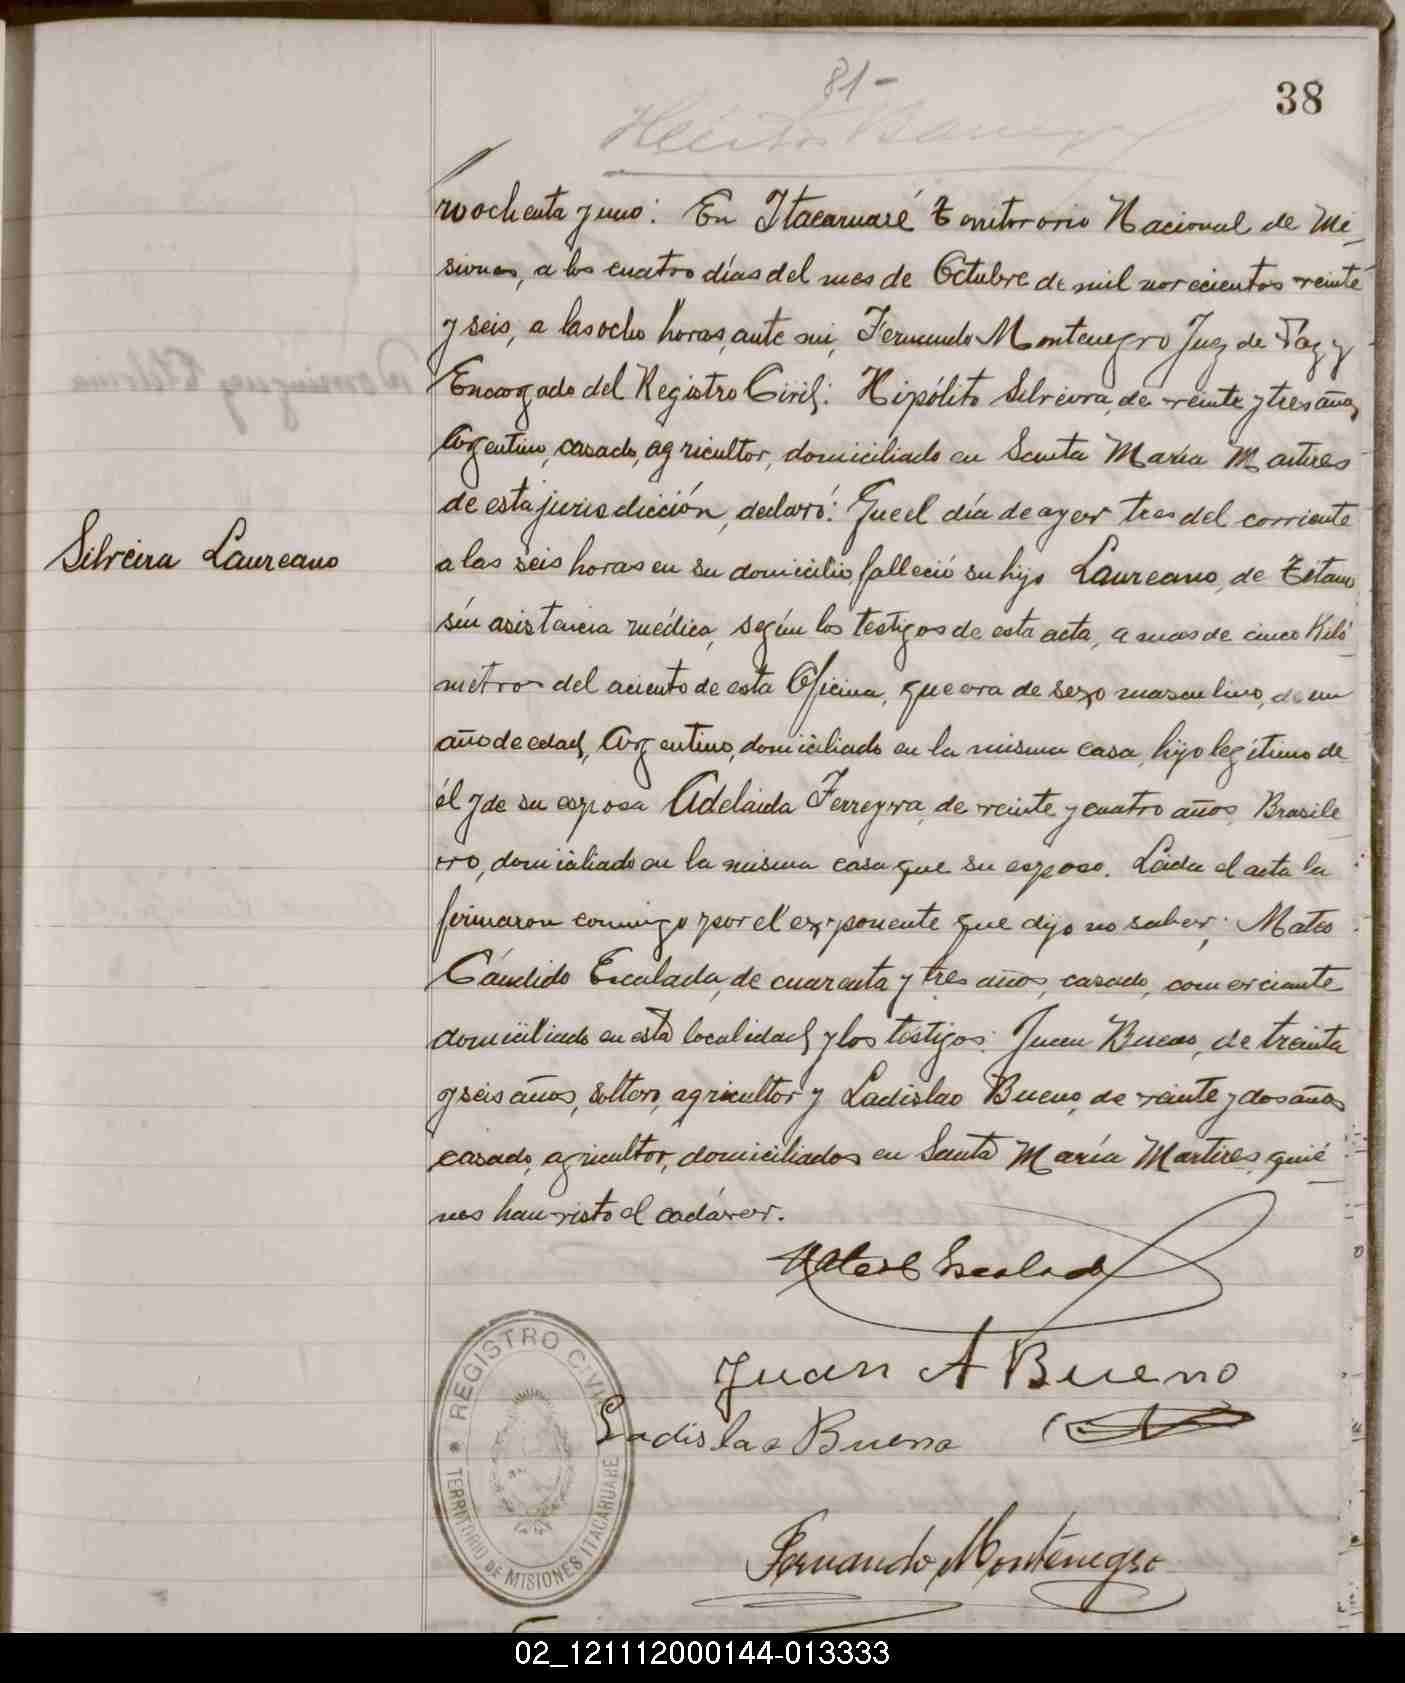 81-
38
Héctor
ro ochenta y uno: En Itacaruaré Territorio Nacional de Mi-
siones, a los cuatro días del mes de Octubre de mil novecientos veinte
y seis, a las ocho horas, ante mi, Fernando Montenegro Juez de Paz y
Encargado del Registro Civil: Hipólito Silveira, de veinte y tres años,
Argentino, casado, agricultor, domiciliado en Santa María Martires
de esta jurisdicción, declaró: Que el día de ayer tres del corriente
Silveira Laureano
a las seis horas en su domicilio, falleció su hijo Laureano, de Tetano
sin asistencia médica, según los testigos de esta acta, a mas de cinco Kiló-
metros del aciento de esta Oficina, que era de sexo masculino, de un
año de edad, Argentino, domiciliado en la misma casa, hijo legítimo de
él y de su esposa Adelaida Ferreyra, de veinte y cuatro años, Brasile-
ro, domiciliado en la misma casa que su esposo. Leida el acta la
firmaron conmigo y por el exponente que dijo no saber; Mateo
Cándido Escalada, de cuarenta y tres años, casado, comerciante
domiciliado en esta localidad y los testigos: Juan Bueno, de treinta
y seis años, soltero, agricultor y Ladislao Bueno, de veinte y dos años
casado, agricultor, domiciliados en Santa María Martires, quié-
nes han visto el cadáver.
Mateo C Escalada
Juan A Bueno
Ladislao Bueno
Fernando Montenegro
REGISTRO CIVIL
TERRITORIO DE MISIONES ITACARUARE
02_121112000144-013333